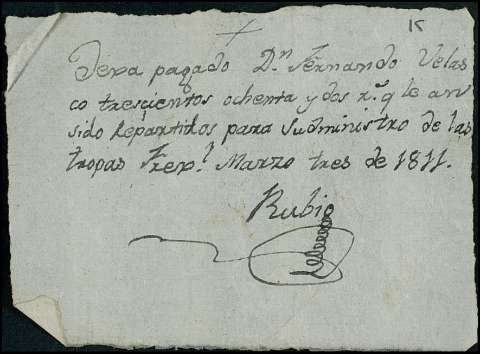 15
Deva pagado Dn. Fernando Velas
co trescientos ochenta y dos r.s q le an
sido Repartidos para sudministro de las
tropas Marzo tres de 1811.
Rubio